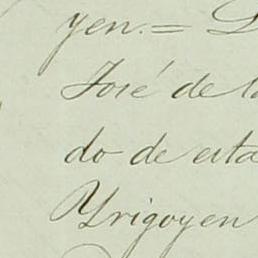 yen. =
José de l
do de esta
Yrigoyen